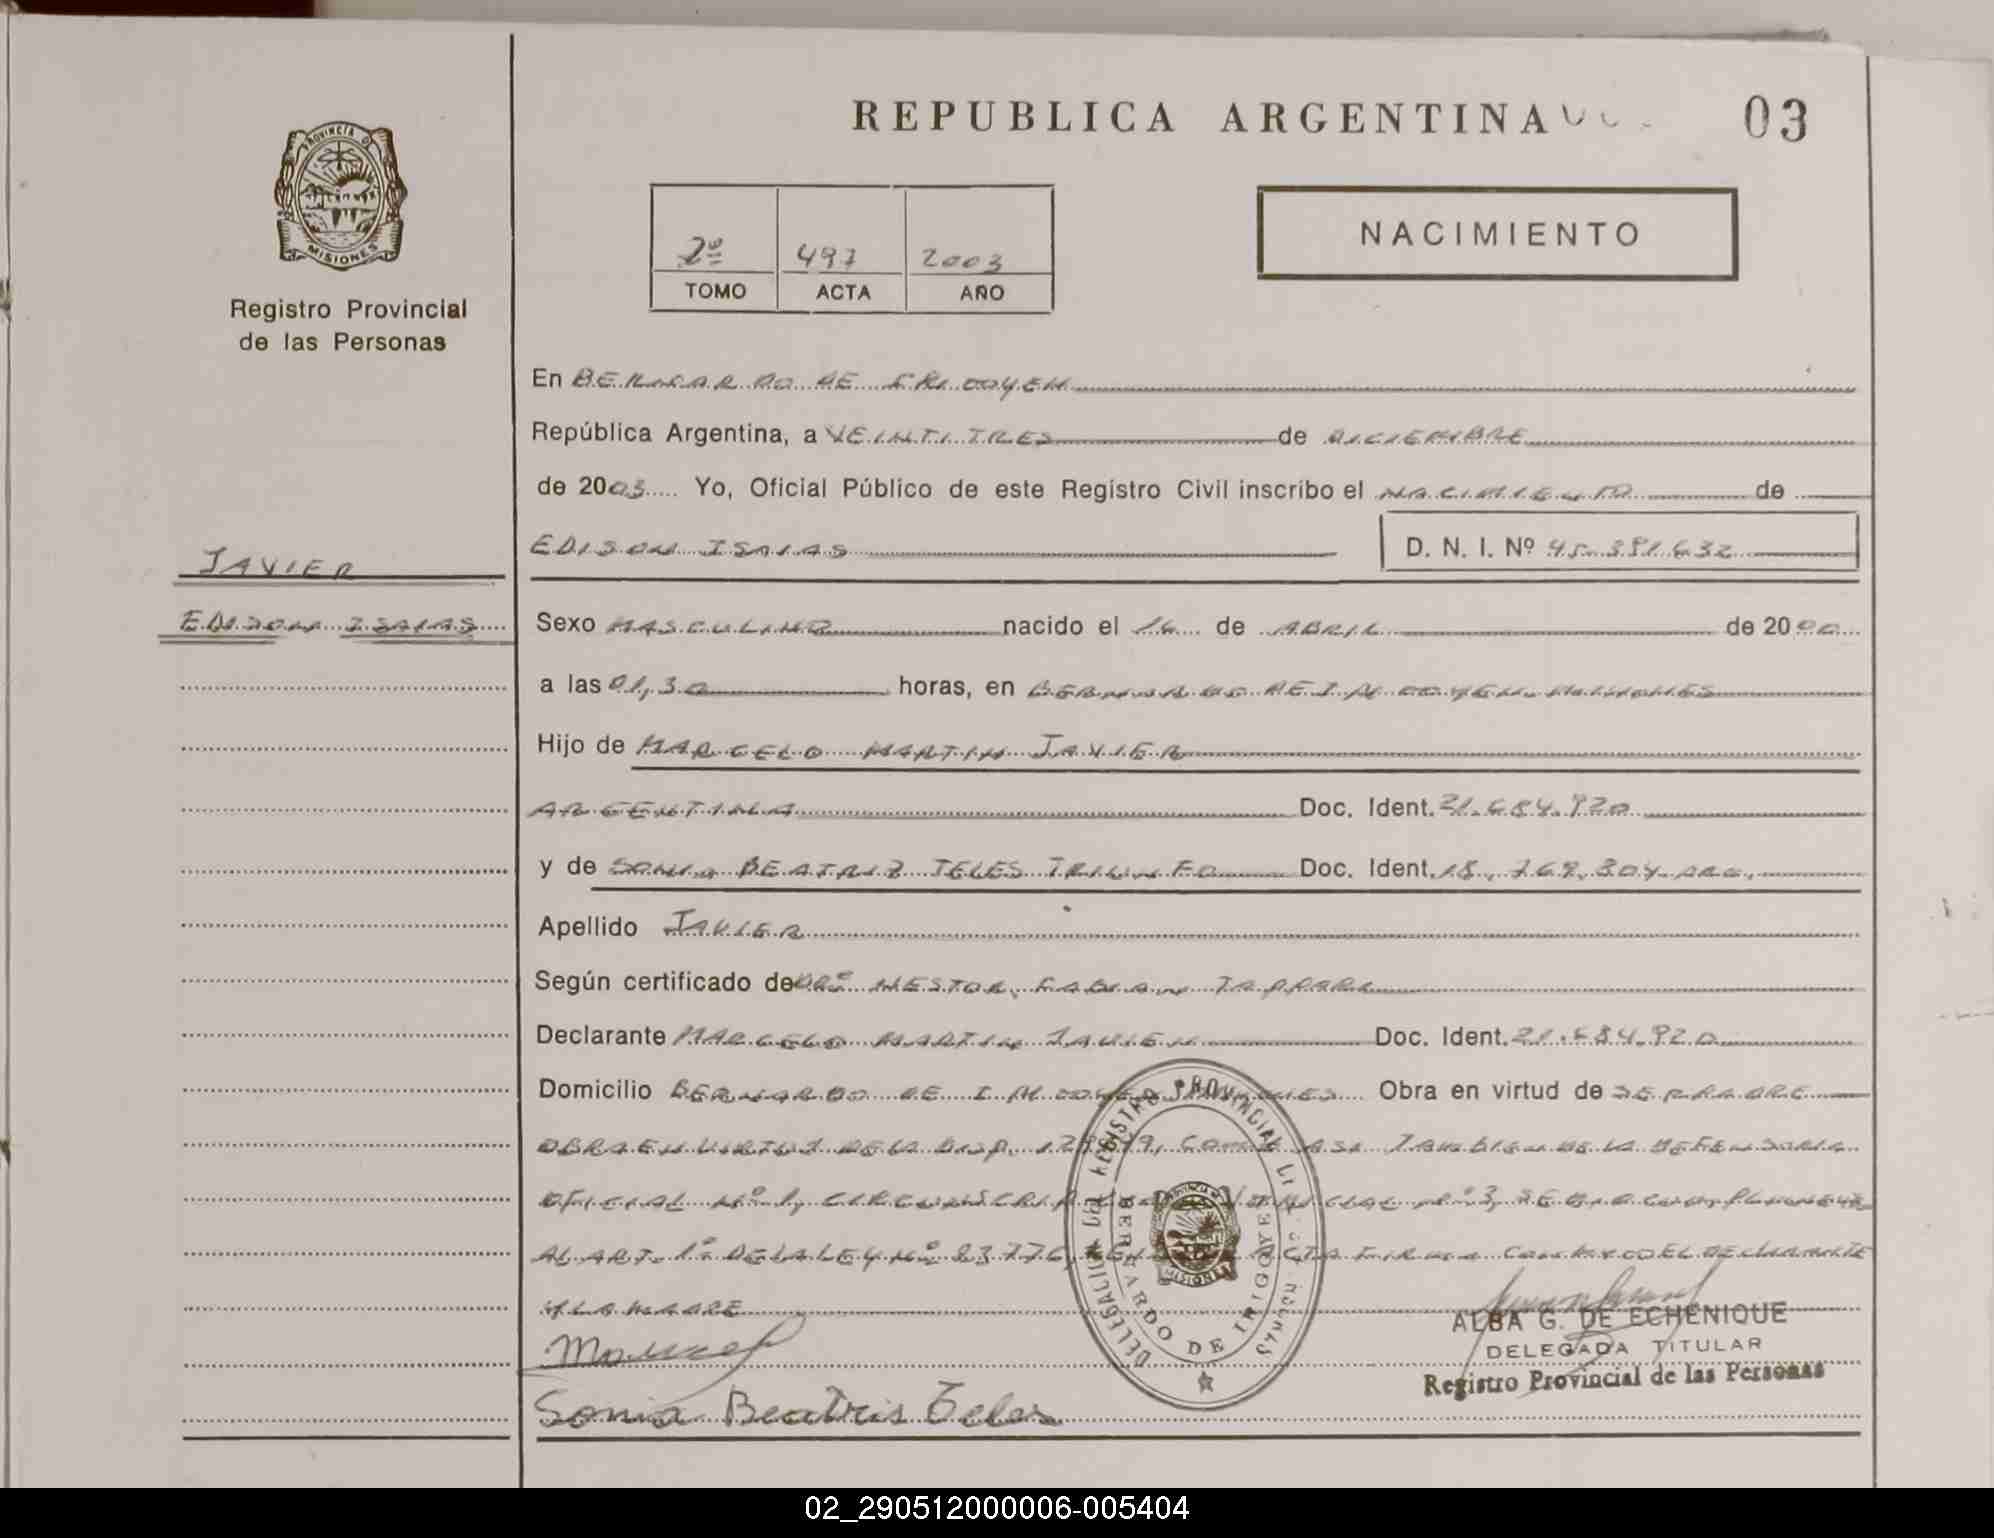 REPUBLICA ARGENTINA
03
PROVINCIA DE
MISIONES
Registro Provincial
de las Personas
2º 497 2003
TOMO ACTA AÑO
NACIMIENTO
En BERNARDO DE IRIGOYEN
República Argentina, a VEINTITRES de DICIEMBRE
de 2003 Yo, Oficial Público de este Registro Civil inscribo el NACIMIENTO de
EDISON ISAIAS D. N. I. Nº 45.391.632
JAVIER
EDISON ISAIAS
Sexo MASCULINO nacido el 16 de ABRIL de 2000
a las 01,30 horas, en BERNARDO DE IRIGOYEN. MISIONES
Hijo de MARCELO MARTIN JAVIER
ARGENTINA Doc. Ident. 21.684.920
y de SONIA BEATRIZ TELES TRIUNFO Doc. Ident. 18.769.804 ARG.
Apellido JAVIER
Según certificado de DR. NESTOR FABIAN
Declarante MARCELO MARTIN JAVIER Doc. Ident. 21.684.920
Domicilio BERNARDO DE IRIGOYEN MISIONES Obra en virtud de
OBRA EN VIRTUD DE LA DISP. COMO ASI TAMBIEN DE LA DEFENSORIA
OFICIAL Nº 1, CIRCUNSCRIPCION JUDICIAL Nº 3,
AL ART. 1º DE LA LEY Nº 23776, ACTA FIRMA CONMIGO EL DECLARANTE
Y LA MADRE
DELEGACION DEL REGISTRO PROVINCIAL DE LAS PERSONAS
BERNARDO DE IRIGOYEN
MISIONES
ALBA G. DE ECHENIQUE
DELEGADA TITULAR
Registro Provincial de las Personas
Sonia Beatris Teles
02_290512000006-005404